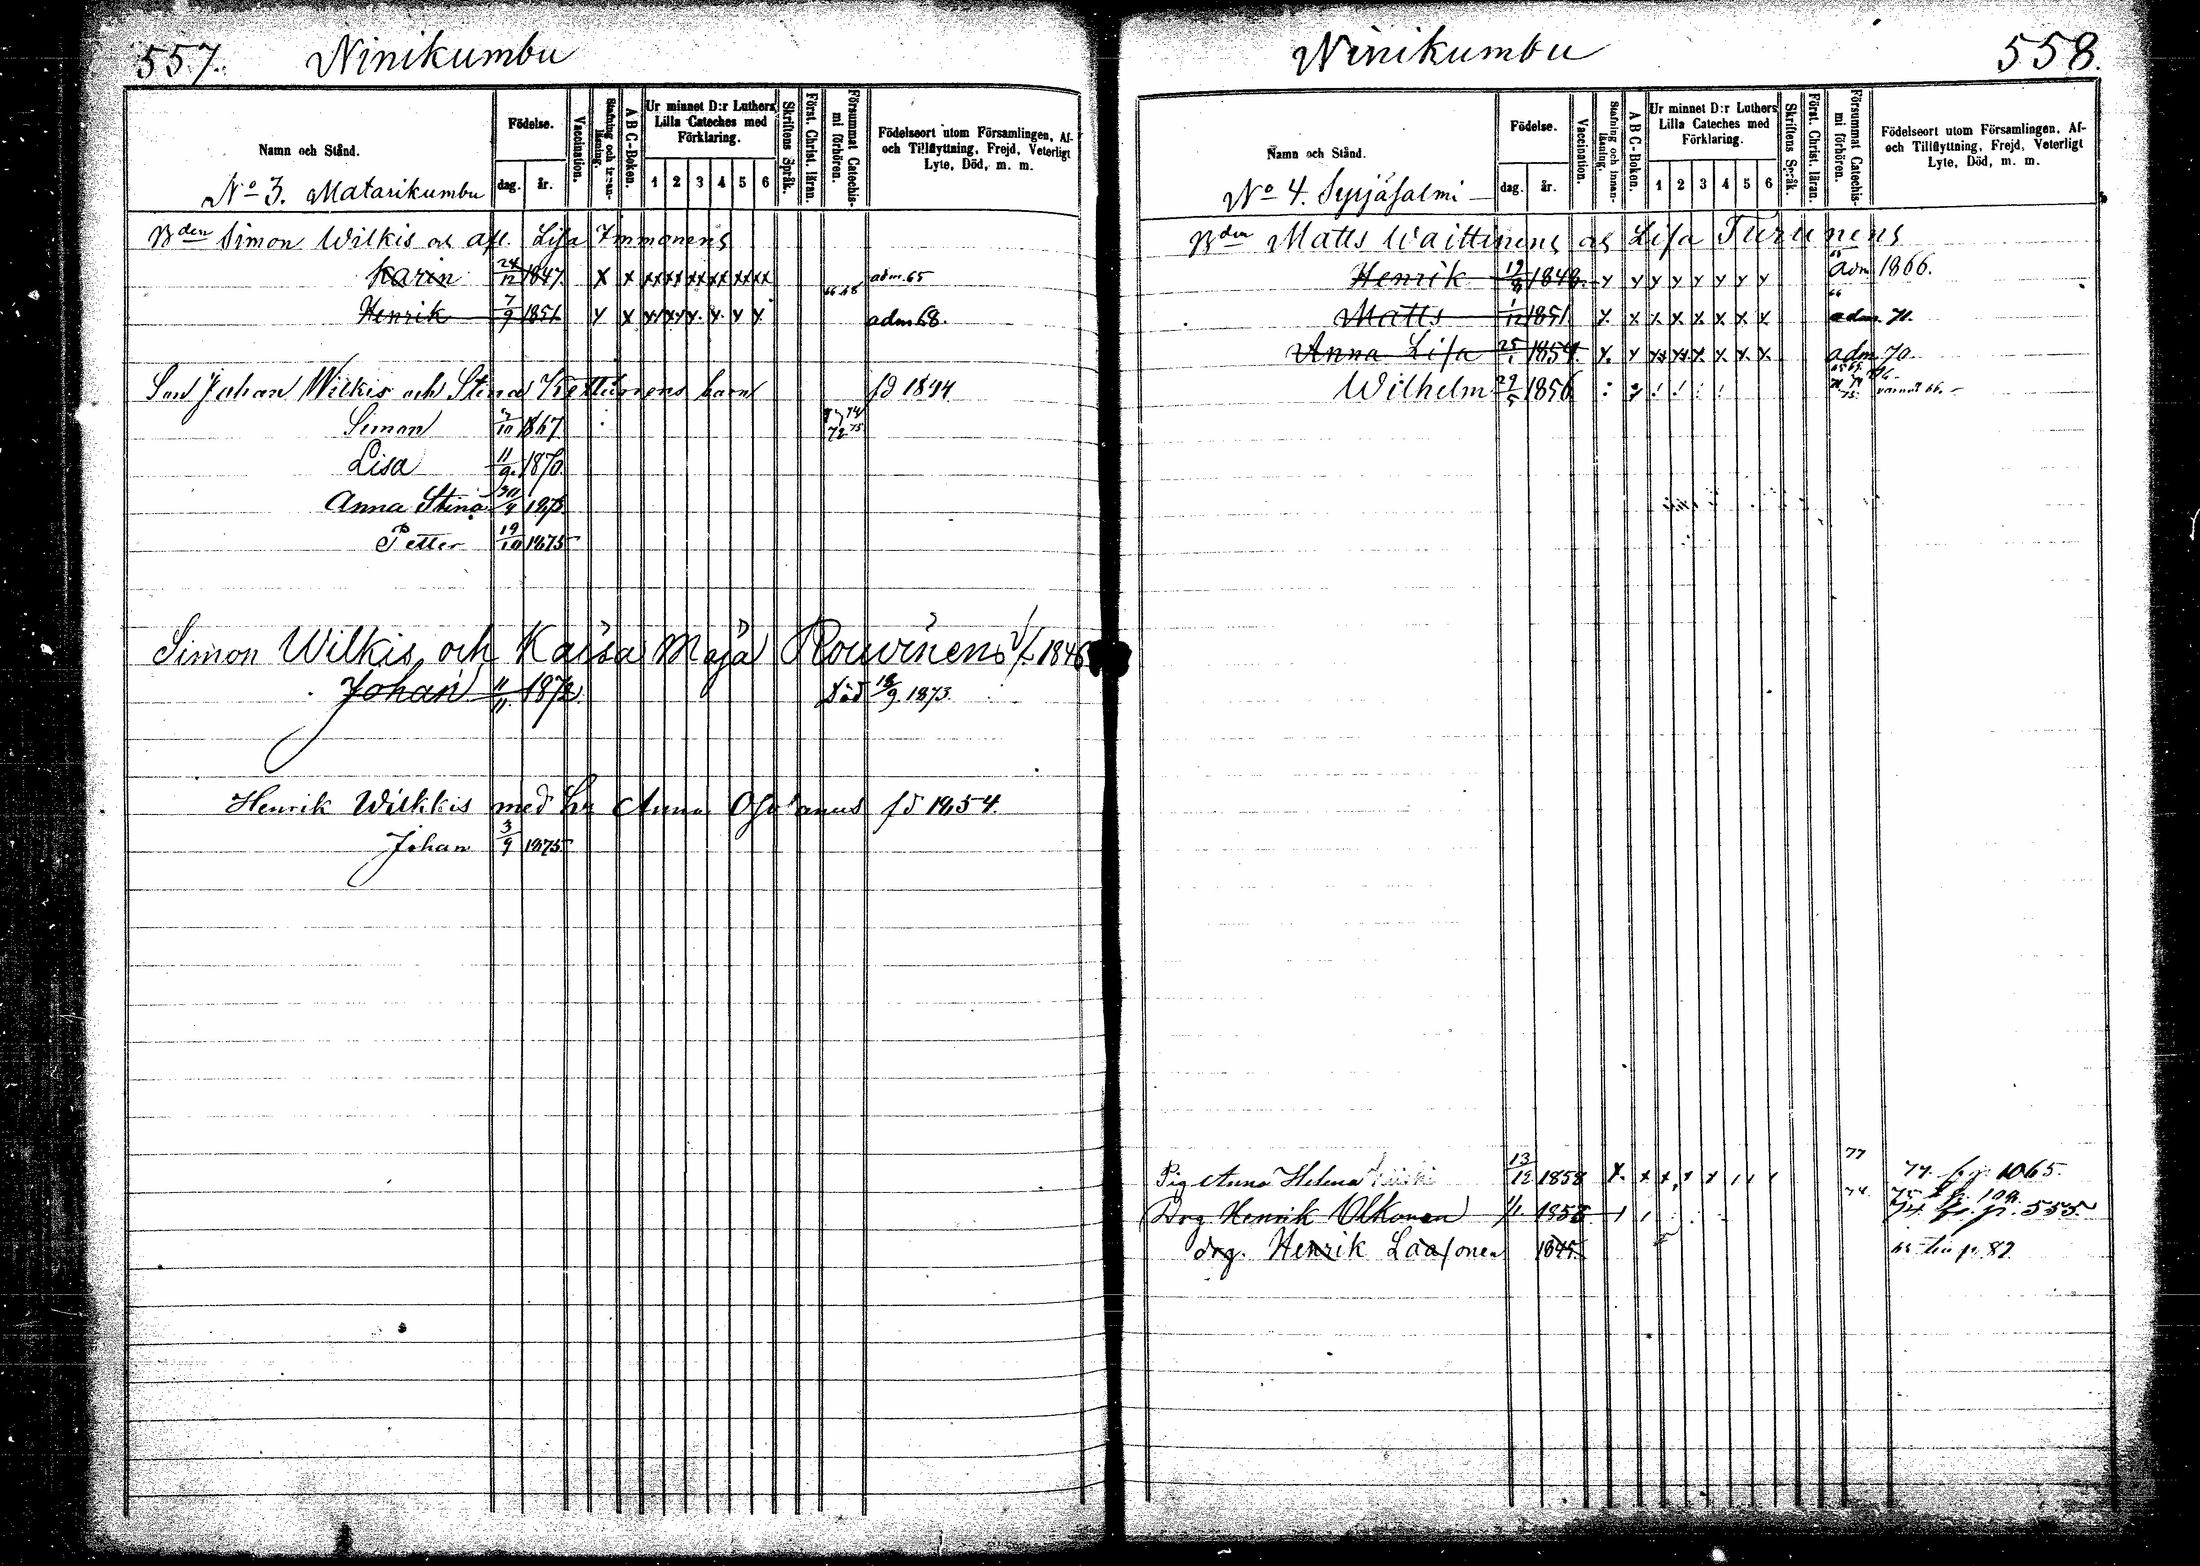 557. Ninikumbu
Namn och Stånd.
Födelse.
dag. år.
Vaccination.
Stafning och innanläsning.
A B C-Boken.
Ur minnet D:r Luthers Lilla Cateches med Förklaring.
1 2 3 4 5 6
Skriftens Språk.
Först. Christ. läran.
Försummat Catechismi förhören.
Födelseort utom Församlingen, Af- och Tillflyttning, Frejd, Veterligt Lyte, Död, m. m.
No 3. Matarikumbu
Bden Simon Wilkis och afl. Lisa Immonens
Karin 24/12 1847. x x xx xx xx xx xx xx adm. 65
Henrik 7/9 1851 adm 68.
Son Johan Wilkis och Stina Kettunens barn fd 1844
Simon 2/10 1867
Lisa 11/9. 1870.
Anna Stina 30/4 1873.
Petter 19/10 1875
Simon Wilkis och Kaisa Maja Rouvinens 1846
Johan 11/11 1872. Död 18/9. 1873.
Henrik Wilkkis med hu Anna fd 1854.
Johan 3/9 1875
Ninikumbu 558.
Namn och Stånd.
Födelse.
dag. år.
Vaccination.
Stafning och innanläsning.
A B C-Boken.
Ur minnet D:r Luthers Lilla Cateches med Förklaring.
1 2 3 4 5 6
Skriftens Språk.
Först. Christ. läran.
Försummat Catechismi förhören.
Födelseort utom Församlingen, Af- och Tillflyttning, Frejd, Veterligt Lyte, Död, m. m.
No 4. Syrjäsalmi
Bden Matts Waittinens och Lisa Turunens
Henrik 1848. adm 1866.
Matts 1/12 1851. adm. 71.
Anna Lisa 25/1 1854. adm 70.
Wilhelm 29/5 1856
Pig Anna Helena 13/12 1858 77 77. fr p. 1065.
Drg Henrik Olkonen 1853 74. fr. p. 555
drg. Henrik Laasonen 1845. p. 82.